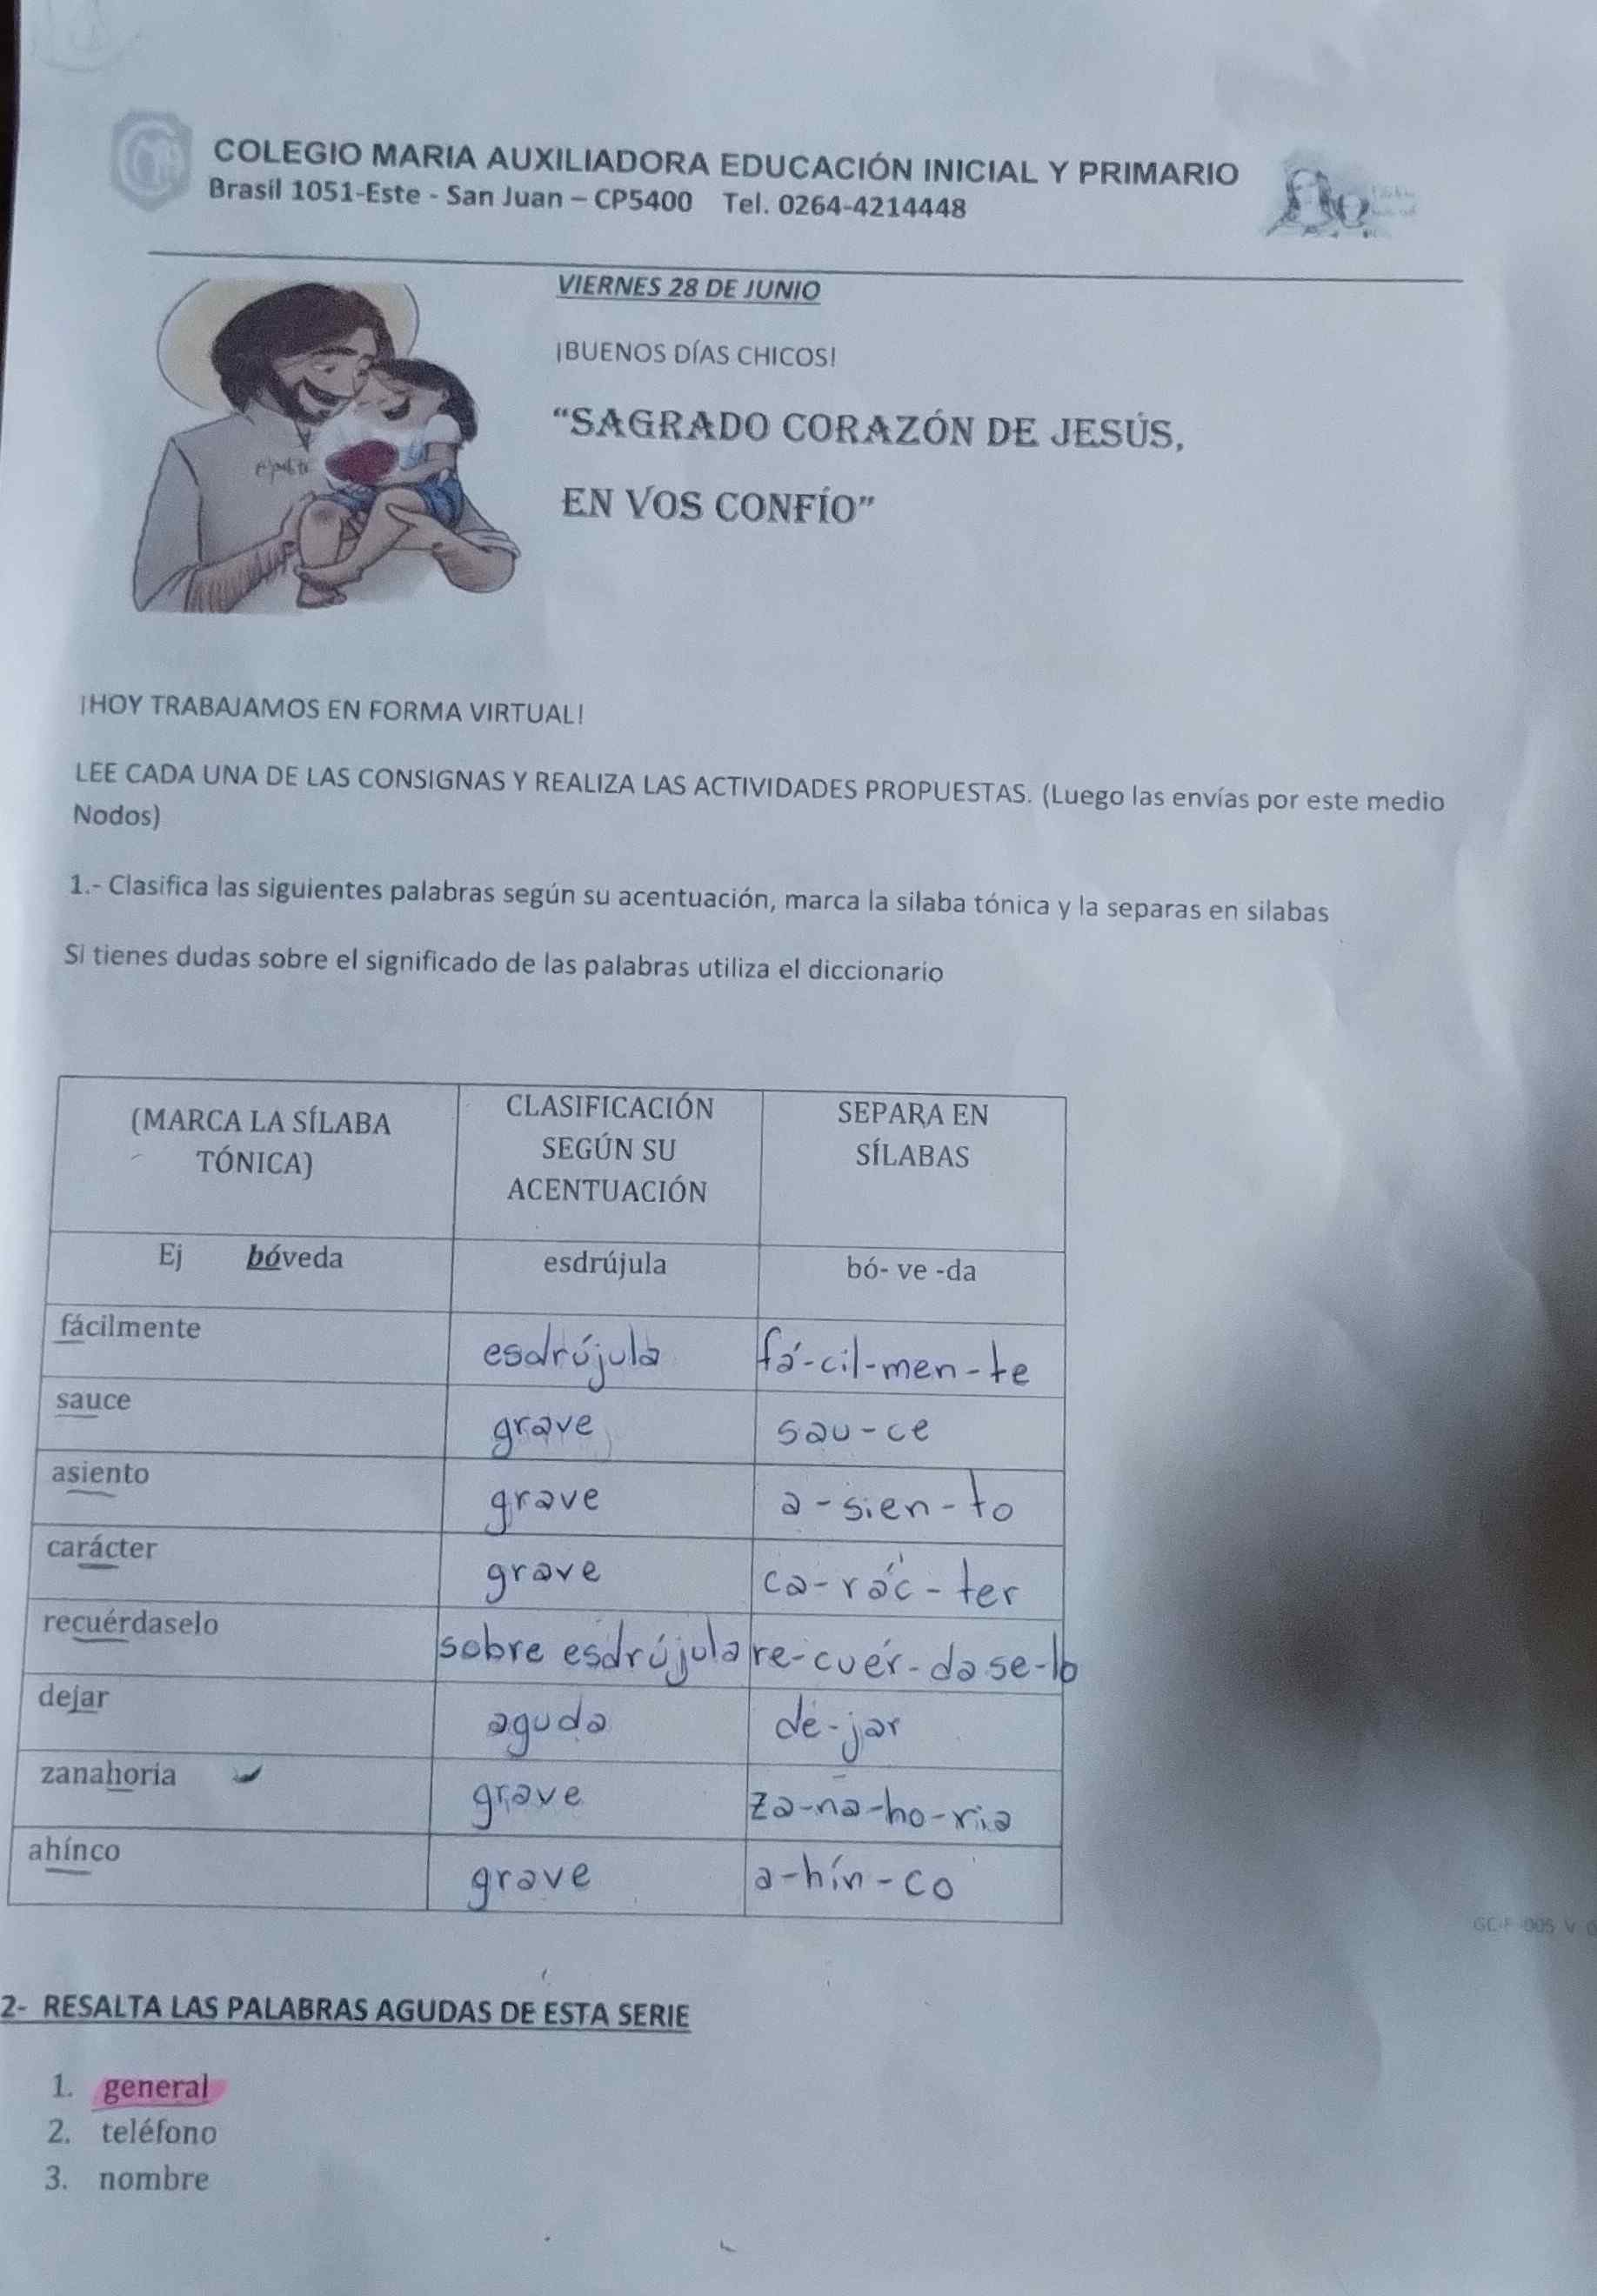 COLEGIO MARIA AUXILIADORA EDUCACIÓN INICIAL Y PRIMARIO
Brasil 1051-Este - San Juan – CP5400 Tel. 0264-4214448
VIERNES 28 DE JUNIO
¡BUENOS DÍAS CHICOS!
“SAGRADO CORAZÓN DE JESÚS,
EN VOS CONFÍO”
¡HOY TRABAJAMOS EN FORMA VIRTUAL!
LEE CADA UNA DE LAS CONSIGNAS Y REALIZA LAS ACTIVIDADES PROPUESTAS. (Luego las envías por este medio
Nodos)
1.- Clasifica las siguientes palabras según su acentuación, marca la silaba tónica y la separas en silabas
Si tienes dudas sobre el significado de las palabras utiliza el diccionario
(MARCA LA SÍLABA
TÓNICA)
CLASIFICACIÓN
SEGÚN SU
ACENTUACIÓN
SEPARA EN
SÍLABAS
Ej bóveda esdrújula bó- ve -da
fácilmente esdrújula fá-cil-men-te
sauce grave sau-ce
asiento grave a-sien-to
carácter grave ca-rác-ter
recuérdaselo sobre esdrújula re-cuér-da se-lo
dejar aguda de-jar
zanahoria grave za-na-ho-ria
ahínco grave a-hín-co
GC-F-005 V
2- RESALTA LAS PALABRAS AGUDAS DE ESTA SERIE
1. general
2. teléfono
3. nombre